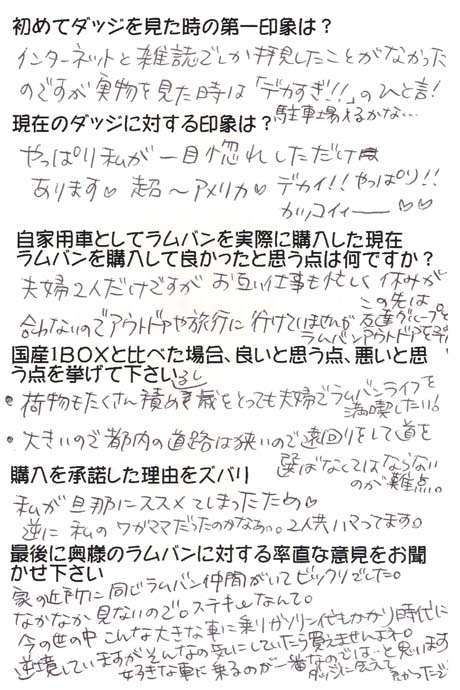 初めてダッジを見た時の第一印象は？
インターネットと雑誌でしか拝見したことがなかった
のですが実物を見た時は「デカすぎ!!」のひと言！
駐車場入るかな…
現在のダッジに対する印象は？
やっぱり私が一目惚れしただけ
あります♡ 超〜アメリカ♡ デカイ!! やっぱり!!
カッコイィー♡♡
自家用車としてラムバンを実際に購入した現在
ラムバンを購入して良かったと思う点は何ですか？
夫婦2人だけですが お互い仕事も忙しく 休みが
合わないのでアウトドアや旅行に 行けていませんが
この先は
友達グループと
ラムバンアウトドアを
国産1BOXと比べた場合、良いと思う点、悪いと思
う点を挙げて下さい
・荷物もたくさん積めるし 歳をとっても夫婦でラムバンライフを
満喫したい！
・大きいので都内の道路は狭いので遠回りをして道を
選ばなくてはならない
のが難点。
購入を承諾した理由をズバリ
私が旦那にススメてしまったため♡
逆に 私のワガママだったのかなぁ。2人共ハマってます。
最後に奥様のラムバンに対する率直な意見をお聞
かせ下さい
家の近所に同じラムバン仲間がいてビックリでした。
なかなか見ないので。ステキなんて。
今の世の中こんな大きな車に乗りガソリン代もかかり時代に
逆境していますがそんなの気にしていたら買えませんよね。
好きな車に乗るのが一番なのでは…と思います
ダッジに会えて 良かったで